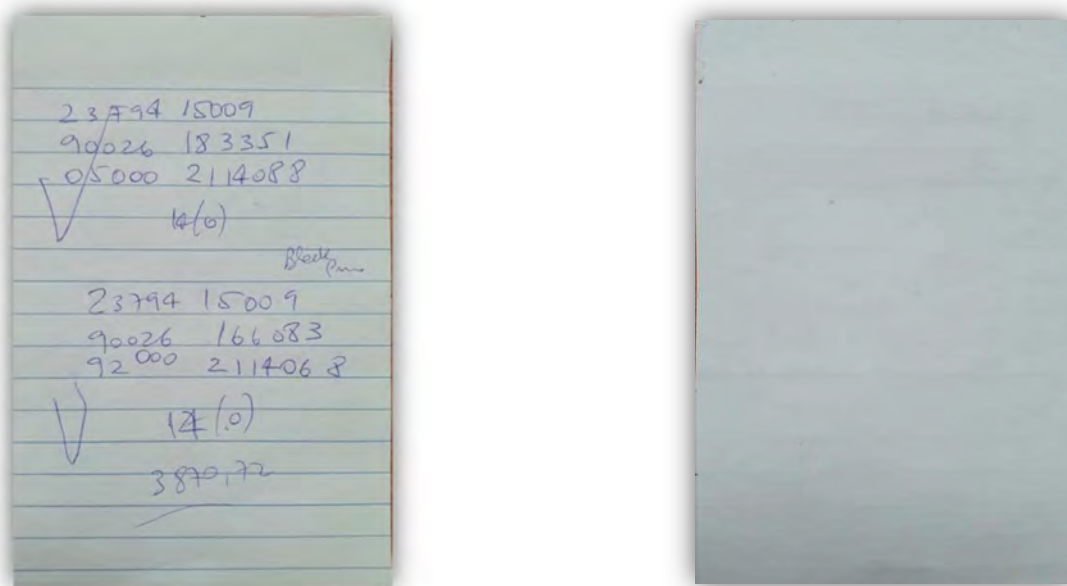 23794 15009
90026 183351
05000 2114088
14(0)
Black
23794 15009
90026 166083
92000 2114068
14(0)
3870,72